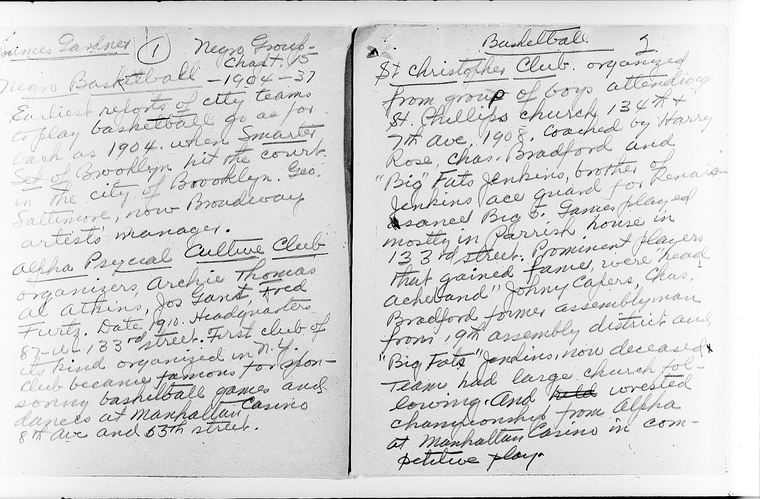 James Gardner (1) Negro Group-
Chapt. 15
Negro Basketball - 1904-37
Earliest reports of city teams
to play basketball go as far
back as 1904. when Smarter
Set of Brooklyn hit the court
in the city of Brooklyn. Geo.
Saltimore, now Broadway
artists' manager.
Alpha Psycial Culture Club
organizers, Archie Thomas
Al Atkins, Jos Gant, Fred
Furtz. Date 1910. Headquarters
87-W-133rd street. First club of
its kind organized in N.Y.
Club became famous for spon-
soring basketball games and
dances at Manhattan Casino
8th Ave and 53th street.
Basketball 2
St Christopher Club. organized
from group of boys attending
St. Phillips church, 134th +
7th ave, 1908. coached by Harry
Rose, Chas. Bradford and
"Big" Fats Jenkins, brother of
Jenkins ace guard for Renais-
sance Big 5. Games played
mostly in Parrish house in
133rd street. Prominent players
that gained fame, were "head
ache band" Johny Capers, Chas.
Bradford former assemblyman
from 19th assembly district and
"Big Fats" Jenkins, now deceased
Team had large church fol-
lowing. And held wrested
championship from Alpha
at Manhattan Casino in com-
petitive play.